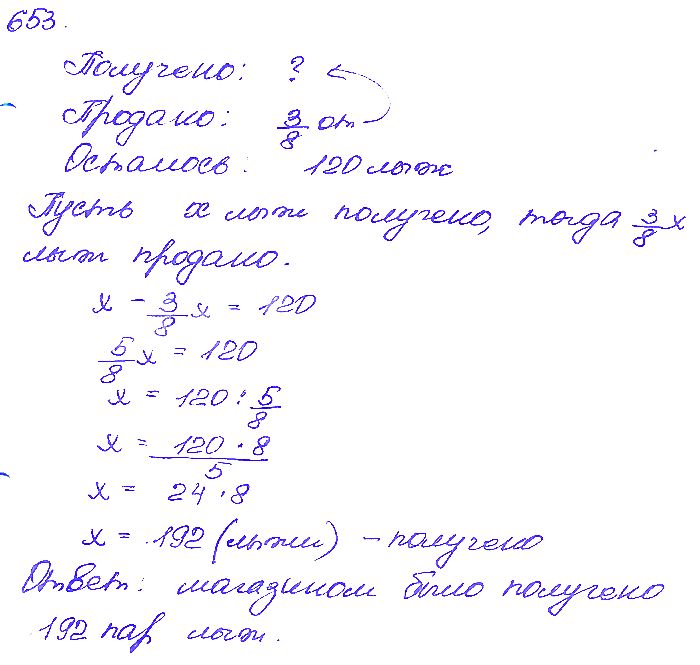 653.
Получено: ?
Продано: 3/8 от
Осталось: 120 лыж
Пусть x лыж получено, тогда 3/8 x
лыж продано.
x - 3/8 x = 120
5/8 x = 120
x = 120 : 5/8
x = 120 · 8 / 5
x = 24 · 8
x = 192 (лыжи) - получено
Ответ: магазином было получено
192 пар лыж.